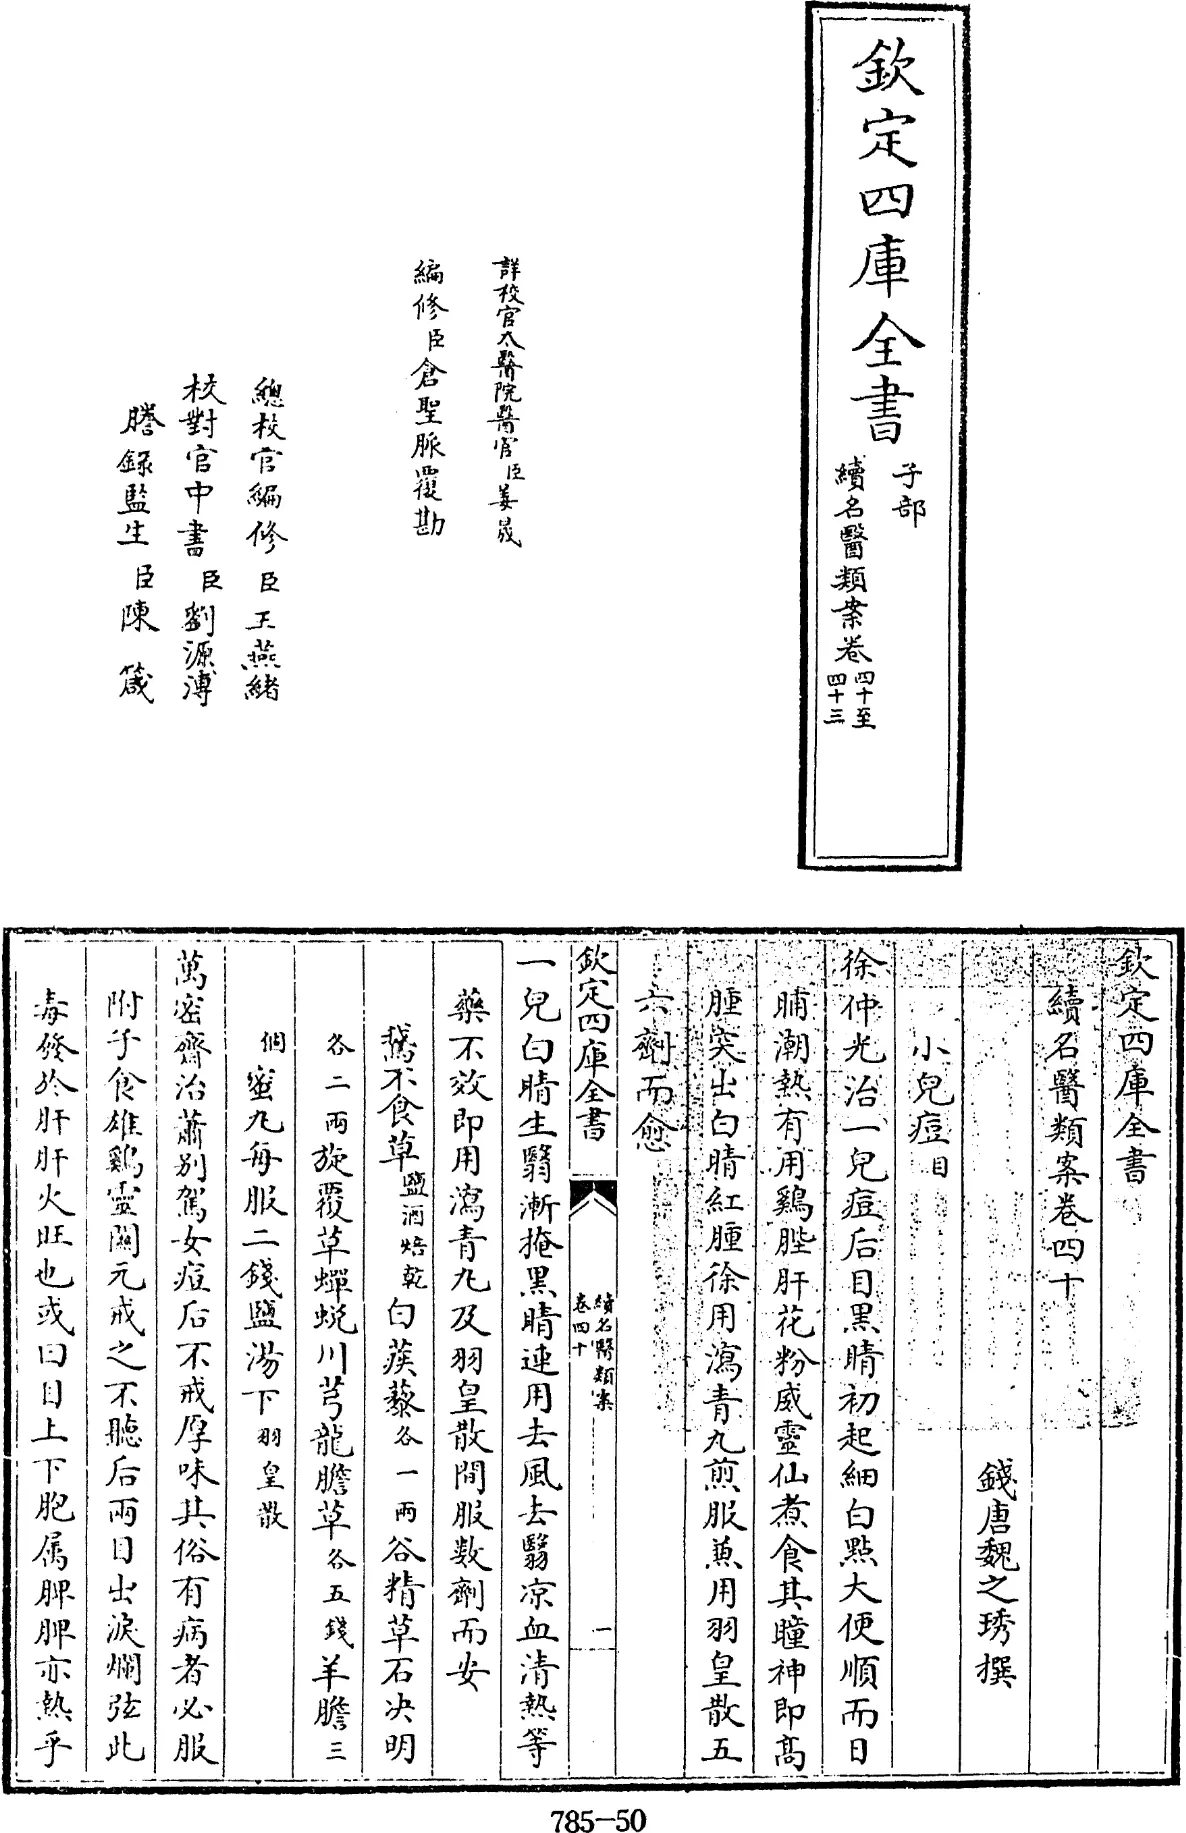 欽定四庫全書
子部
續名醫類案卷四十至
四十三
詳校官太醫院醫官臣姜晟
編修臣倉聖脈覆勘
總校官編修臣王燕緒
校對官中書臣劉源溥
謄錄監生臣陳箴
欽定四庫全書
續名醫類案卷四十
錢唐魏之琇撰
小兒痘目
徐仲光治一兒痘后目黒睛初起細白點大便順而日
晡潮熱有用鷄䏶肝花粉威靈仙煮食其瞳神即髙
腫突出白睛紅腫徐用瀉青九煎服兼用羽皇散五
六劑而愈
欽定四庫全書
續名醫類案
卷四十
一
一兒白睛生翳漸掩黒睛連用去風去翳凉血清熱等
藥不效即用瀉青九及羽皇散間服数劑而安
鵞不食草鹽酒焙乾白蒺藜各一兩谷精草石决明
各二兩旋覆草蟬蛻川芎龍膽草各五錢羊膽三
個蜜九每服二錢鹽湯下羽皇散
萬密齋治蕭別駕女痘后不戒厚味其俗有病者必服
附子食雄鷄靈闗元戒之不聽后兩目出淚爛弦此
毒發於肝肝火旺也或曰目上下胞属脾脾亦熱乎
785-50